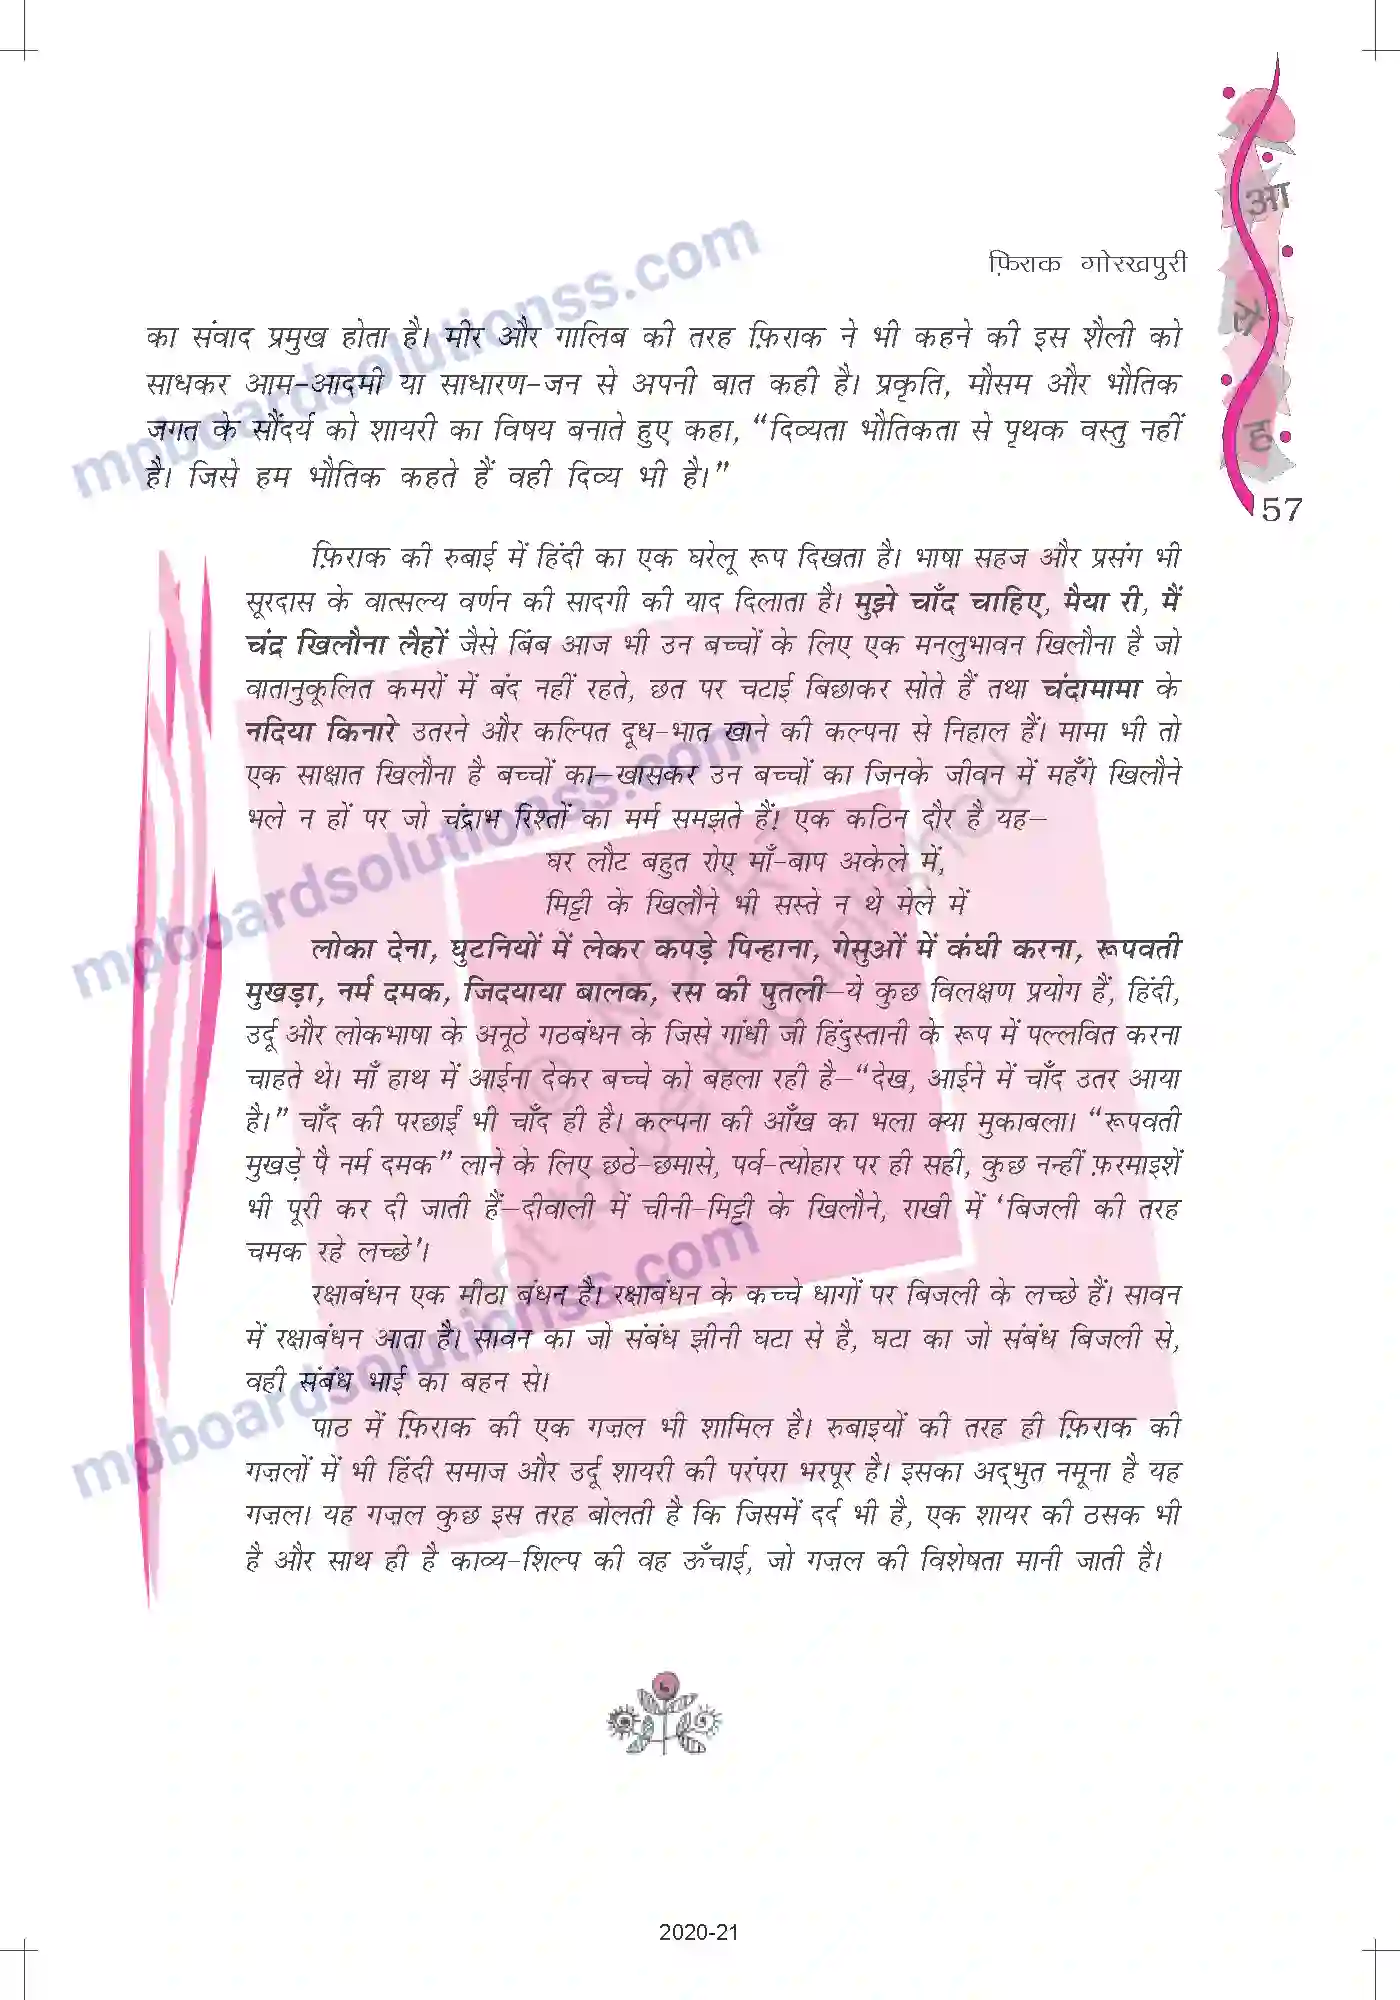 फ़िराक गोरखपुरी
आ
रो
ह
57
का संवाद प्रमुख होता है। मीर और गालिब की तरह फ़िराक ने भी कहने की इस शैली को
साधकर आम-आदमी या साधारण-जन से अपनी बात कही है। प्रकृति, मौसम और भौतिक
जगत के सौंदर्य को शायरी का विषय बनाते हुए कहा, “दिव्यता भौतिकता से पृथक वस्तु नहीं
है। जिसे हम भौतिक कहते हैं वही दिव्य भी है।”
फ़िराक की रुबाई में हिंदी का एक घरेलू रूप दिखता है। भाषा सहज और प्रसंग भी
सूरदास के वात्सल्य वर्णन की सादगी की याद दिलाता है। मुझे चाँद चाहिए, मैया री, मैं
चंद्र खिलौना लैहों जैसे बिंब आज भी उन बच्चों के लिए एक मनलुभावन खिलौना है जो
वातानुकूलित कमरों में बंद नहीं रहते, छत पर चटाई बिछाकर सोते हैं तथा चंदामामा के
नदिया किनारे उतरने और कल्पित दूध-भात खाने की कल्पना से निहाल हैं। मामा भी तो
एक साक्षात खिलौना है बच्चों का—खासकर उन बच्चों का जिनके जीवन में महँगे खिलौने
भले न हों पर जो चंद्राभ रिश्तों का मर्म समझते हैं! एक कठिन दौर है यह—
घर लौट बहुत रोए माँ-बाप अकेले में,
मिट्टी के खिलौने भी सस्ते न थे मेले में
लोका देना, घुटनियों में लेकर कपड़े पिन्हाना, गेसुओं में कंघी करना, रूपवती
मुखड़ा, नर्म दमक, जिदयाया बालक, रस की पुतली—ये कुछ विलक्षण प्रयोग हैं, हिंदी,
उर्दू और लोकभाषा के अनूठे गठबंधन के जिसे गांधी जी हिंदुस्तानी के रूप में पल्लवित करना
चाहते थे। माँ हाथ में आईना देकर बच्चे को बहला रही है—“देख, आईने में चाँद उतर आया
है।” चाँद की परछाईं भी चाँद ही है। कल्पना की आँख का भला क्या मुकाबला। “रूपवती
मुखड़े पै नर्म दमक” लाने के लिए छठे-छमासे, पर्व-त्योहार पर ही सही, कुछ नन्हीं फ़रमाइशें
भी पूरी कर दी जाती हैं—दीवाली में चीनी-मिट्टी के खिलौने, राखी में ‘बिजली की तरह
चमक रहे लच्छे’।
रक्षाबंधन एक मीठा बंधन है। रक्षाबंधन के कच्चे धागों पर बिजली के लच्छे हैं। सावन
में रक्षाबंधन आता है। सावन का जो संबंध झीनी घटा से है, घटा का जो संबंध बिजली से,
वही संबंध भाई का बहन से।
पाठ में फ़िराक की एक गज़ल भी शामिल है। रुबाइयों की तरह ही फ़िराक की
गज़लों में भी हिंदी समाज और उर्दू शायरी की परंपरा भरपूर है। इसका अद्‌भुत नमूना है यह
गज़ल। यह गज़ल कुछ इस तरह बोलती है कि जिसमें दर्द भी है, एक शायर की ठसक भी
है और साथ ही है काव्य-शिल्प की वह ऊँचाई, जो गज़ल की विशेषता मानी जाती है।
2020-21
mpboardsolutionss.com
mpboardsolutionss.com
mpboardsolutionss.com
© NCERT
not to be republished